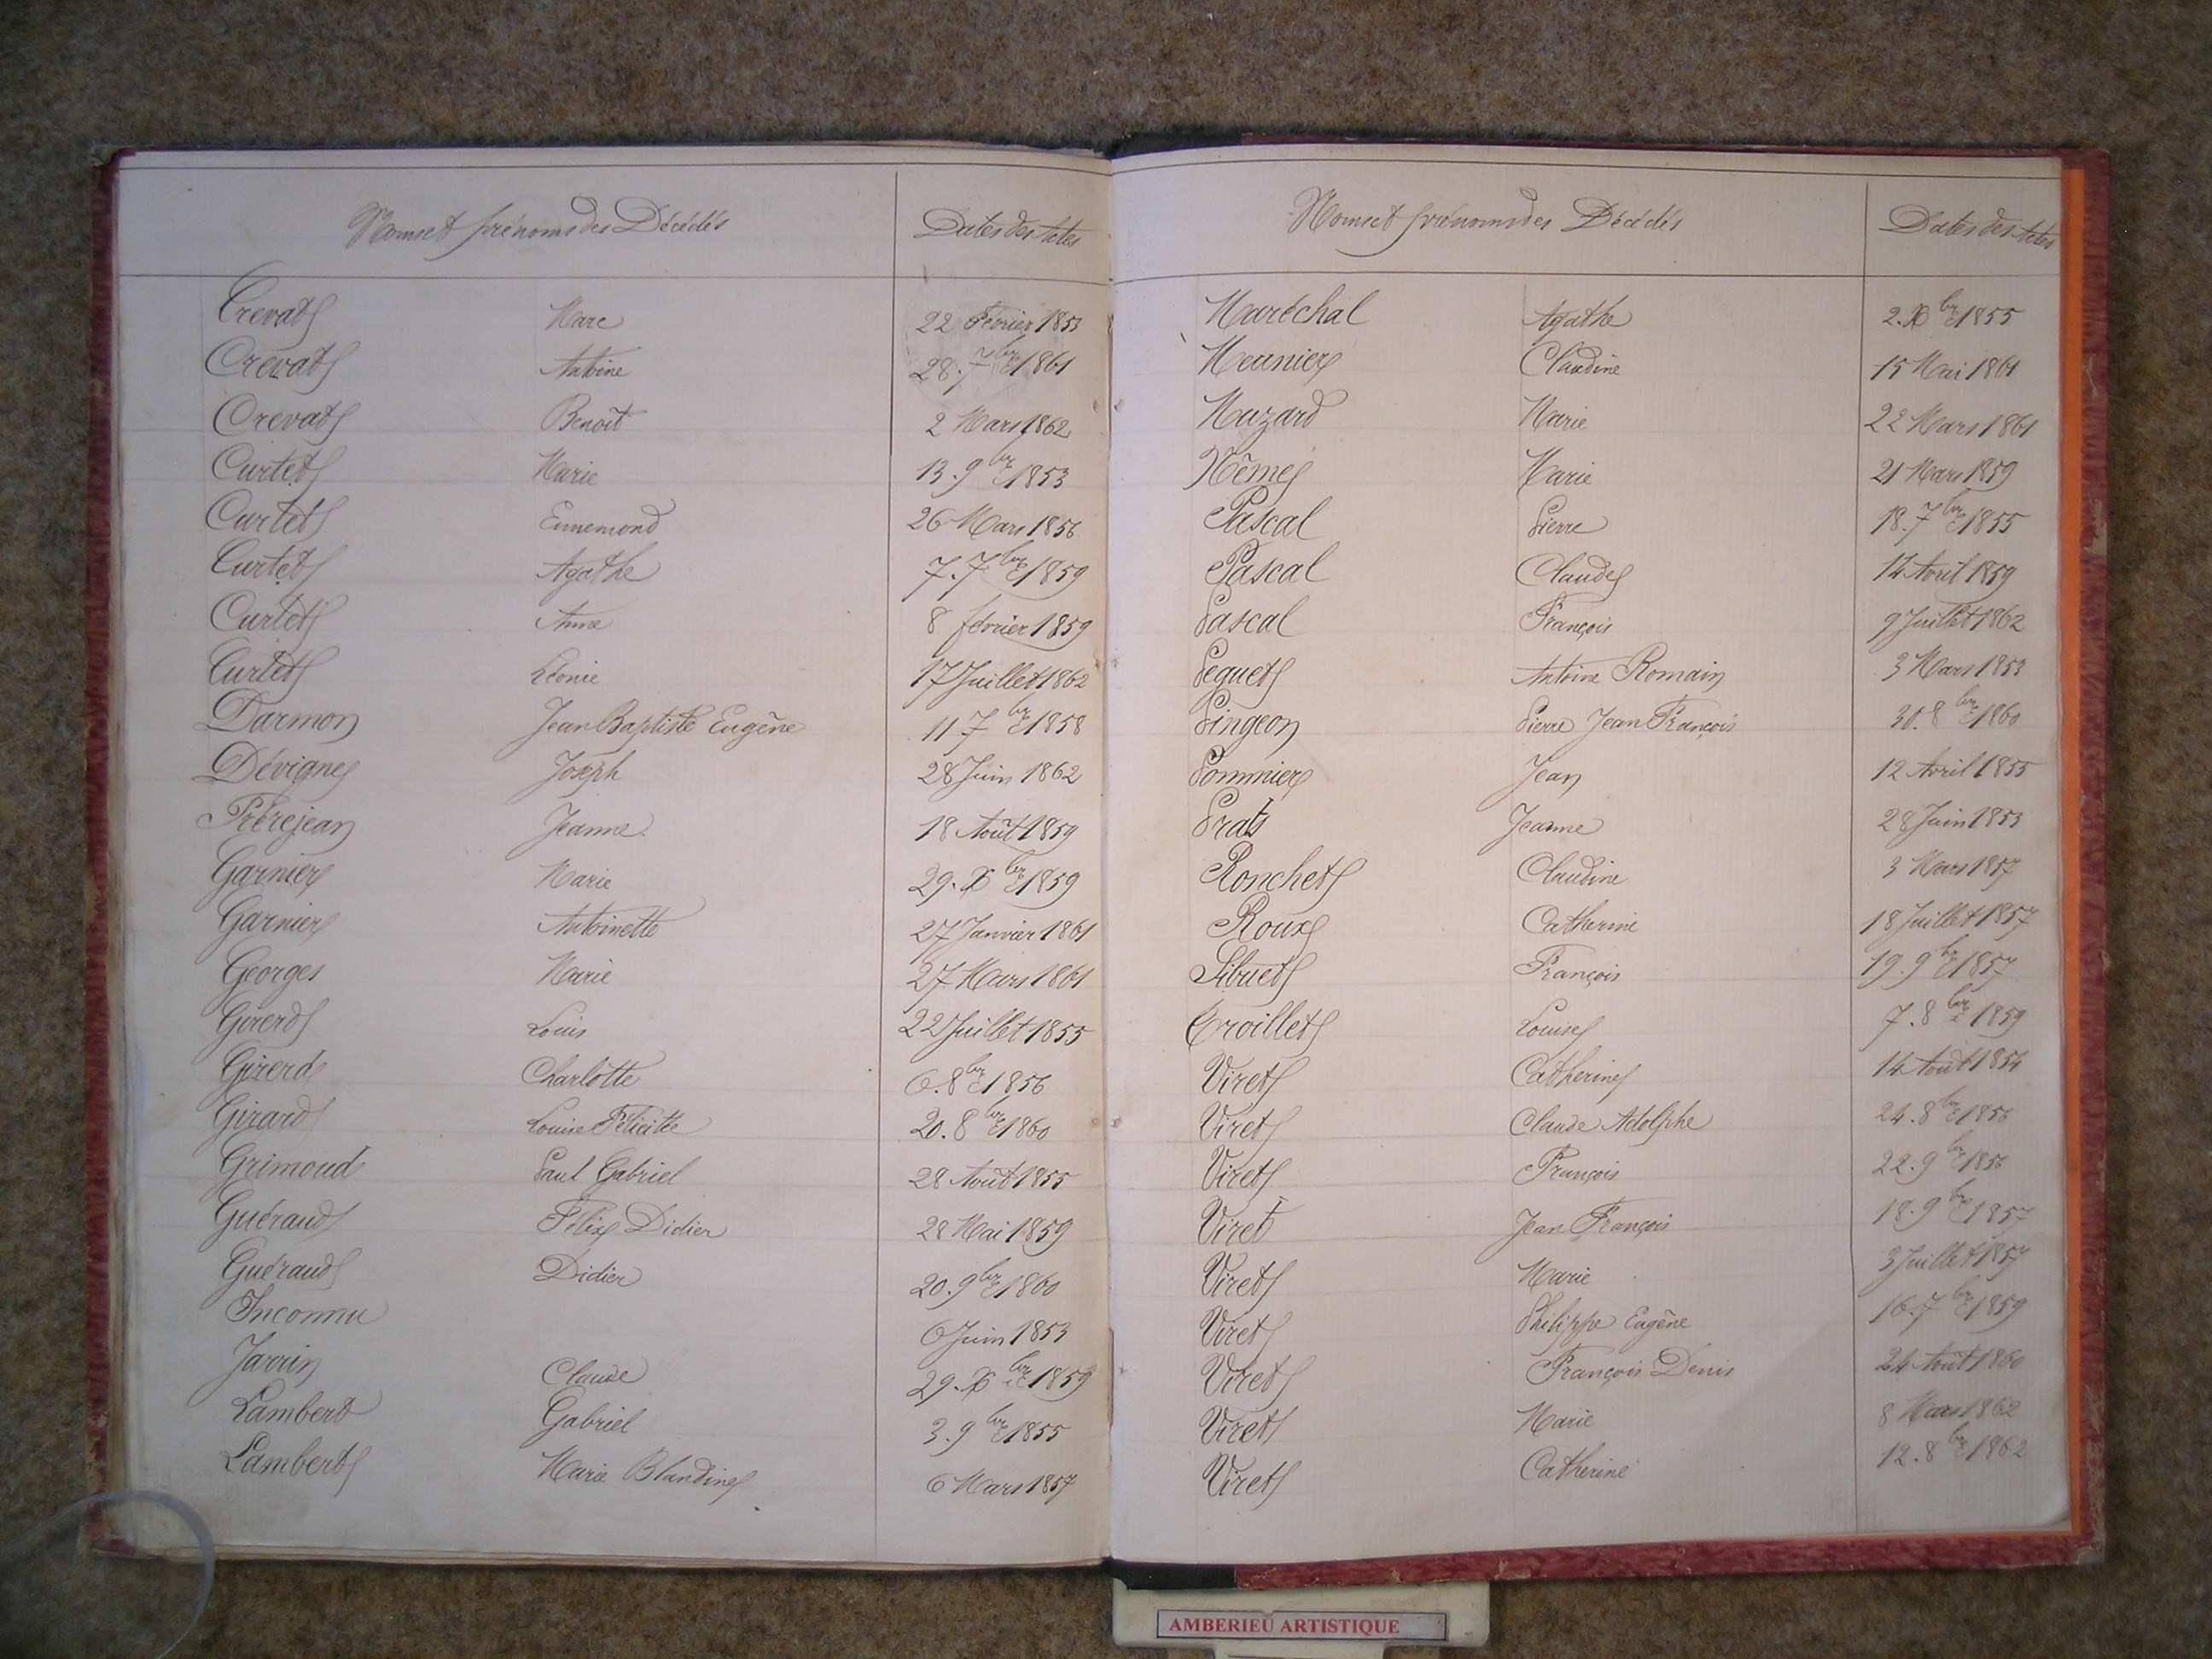 Noms et prénoms des Décédés Dates des Actes
Crevat Marc 22 Février 1853
Crevat Antoine 28. 7bre 1861
Crevat Benoît 2 Mars 1862
Curtet Marie 13. 9bre 1853
Curtet Ennemond 26 Mars 1856
Curtet Agathe 7. 7bre 1859
Curtet Anne 8 février 1859
Curtet Léonie 17 Juillet 1862
Darmon Jean Baptiste Eugène 11 7bre 1858
Dévigne Joseph 28 Juin 1862
Frèrejean Jeanne 18 Août 1859
Garnier Marie 29. Xbre 1859
Garnier Antoinette 27 Janvier 1861
Georges Marie 27 Mars 1861
Girerd Louis 22 Juillet 1855
Girerd Charlotte 6. 8bre 1856
Girard Louise Félicité 20. 8bre 1860
Grimoud Paul Gabriel 28 Août 1855
Guéraud Félix Didier 28 Mai 1859
Guéraud Didier 20. 9bre 1860
Inconnu 6 Juin 1853
Jarrin Claude 29. Xbre 1859
Lambert Gabriel 3. 9bre 1855
Lambert Marie Blandine 6 Mars 1857
Noms et prénoms des Décédés Dates des Actes
Maréchal Agathe 2. Xbre 1855
Meunier Claudine 15 Mai 1861
Muzard Marie 22 Mars 1861
Nême Marie 21 Mars 1859
Pascal Pierre 18. 7bre 1855
Pascal Claude 14 Avril 1859
Pascal François 9 Juillet 1862
Peguet Antoine Romain 3 Mars 1853
Pingeon Pierre Jean François 30. 8bre 1860
Pommier Jean 12 Avril 1855
Prat Jeanne 28 Juin 1853
Ronchet Claudine 3 Mars 1857
Roux Catherine 18 Juillet 1857
Sibuet François 19. 9bre 1857
Troillet Louise 7. 8bre 1859
Viret Catherine 14 Août 1854
Viret Claude Adolphe 24. 8bre 1856
Viret François 22. 9bre 1856
Viret Jean François 18. 9bre 1857
Viret Marie 3 Juillet 1857
Viret Philippe Eugène 16. 7bre 1859
Viret François Denis 24 Août 1860
Viret Marie 8 Mars 1862
Viret Catherine 12. 8bre 1862
AMBERIEU ARTISTIQUE